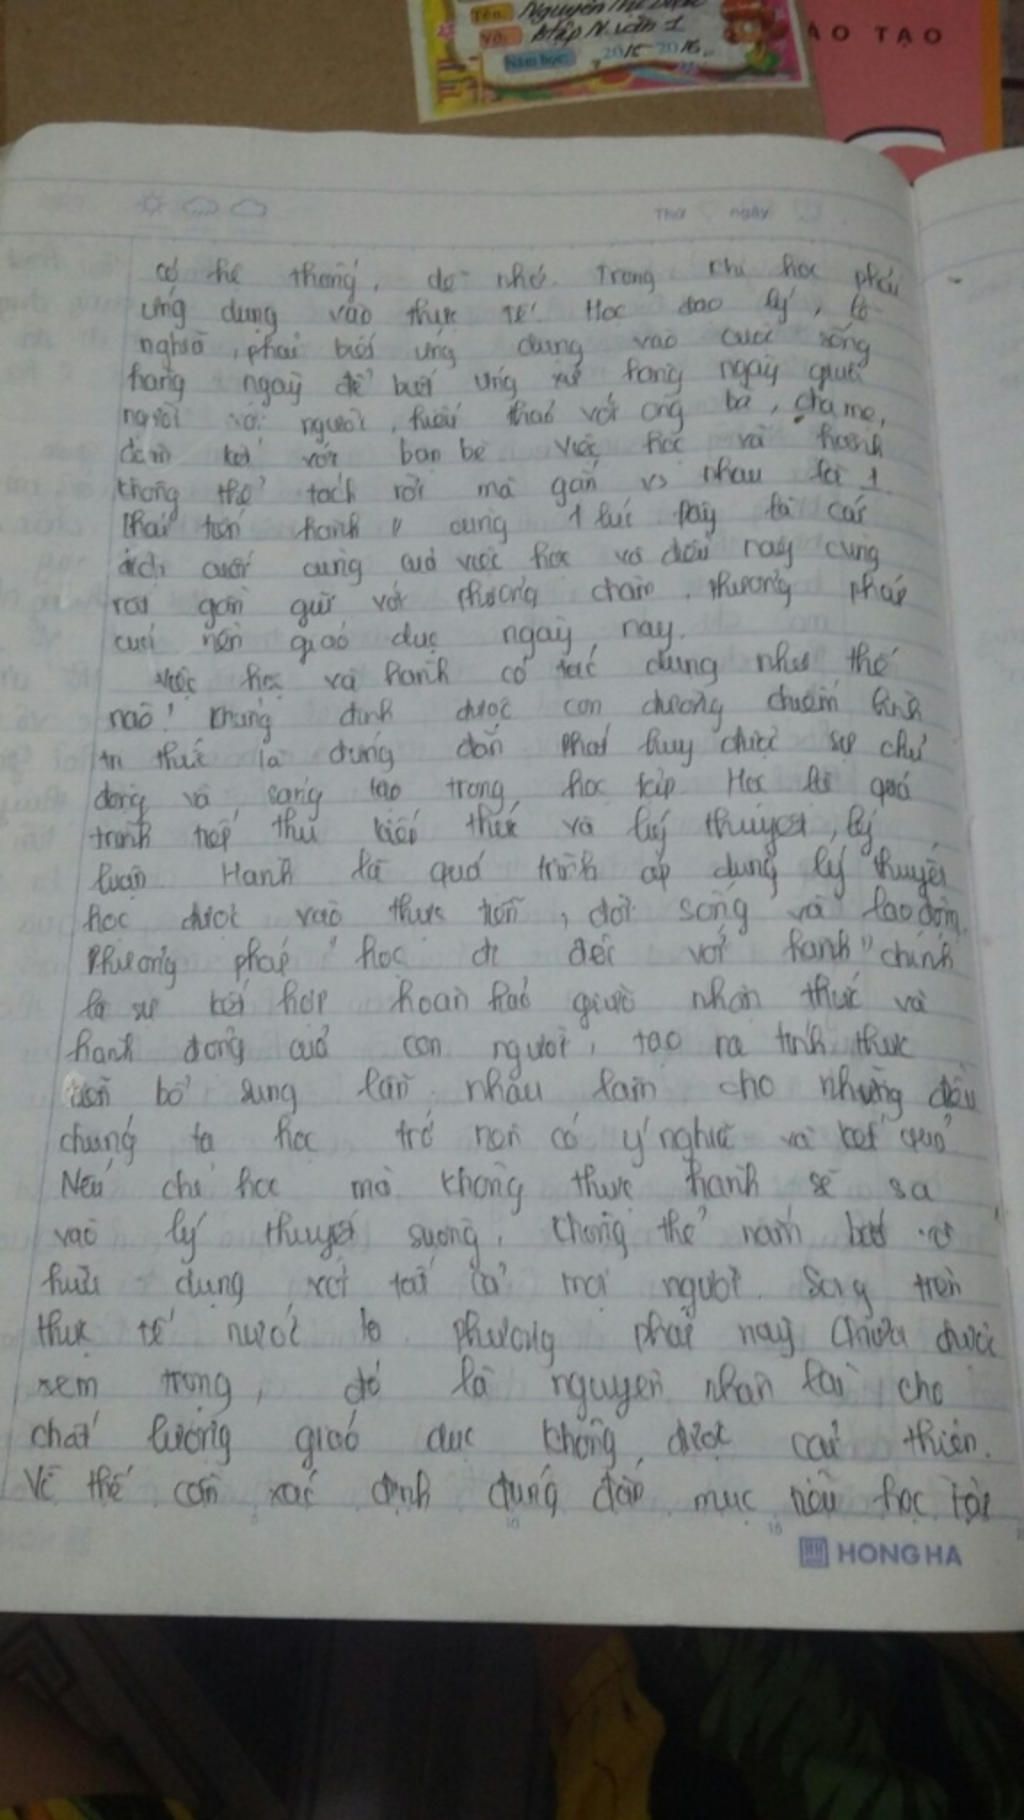 Tên: Nguyễn Thị
Vở: N. văn 1
Năm học: 2015-2016
ÀO TẠO
Thứ ngày
có hệ thống, dễ nhớ. Trong khi học phải
ứng dụng vào thực tế. Học đạo lý, lễ
nghĩa, phải biết ứng dụng vào cuộc sống
hàng ngày để biết ứng xử hàng ngày giữa
người với người, hiếu thảo với ông bà, cha mẹ,
với bạn bè việc học và hành
không thể tách rời mà gắn vs nhau là 1
Phải tiến hành cùng 1 lúc Đây là cái
đích cuối cùng của việc học và điều này cũng
rất gần gũi với phương châm, phương pháp
của nền giáo dục ngày nay.
Việc học và hành có tác dụng như thế
nào? Khẳng định được con đường chiếm lĩnh
tri thức là đúng đắn Phát huy được sự chủ
động và sáng tạo trong học tập Học là quá
trình tiếp thu kiến thức và lý thuyết, lý
luận. Hành là quá trình áp dụng lý thuyết
học được vào thực tiễn, đời sống và lao động.
Phương pháp "học đi đôi với hành" chính
là sự kết hợp hoàn hảo giữa nhận thức và
hành động của con người, tạo ra tính thực
tiễn bổ sung lẫn nhau làm cho những điều
chúng ta học trở nên có ý nghĩa và kết quả
Nếu chỉ học mà không thực hành sẽ sa
vào lý thuyết suông, không thể nắm bắt
hữu dụng với tất cả mọi người. Song trên
thực tế nước ta phương pháp này chưa được
xem trọng, đó là nguyên nhân làm cho
chất lượng giáo dục không được cải thiện.
Vì thế cần xác định đúng đắn mục tiêu học tập
HONG HA